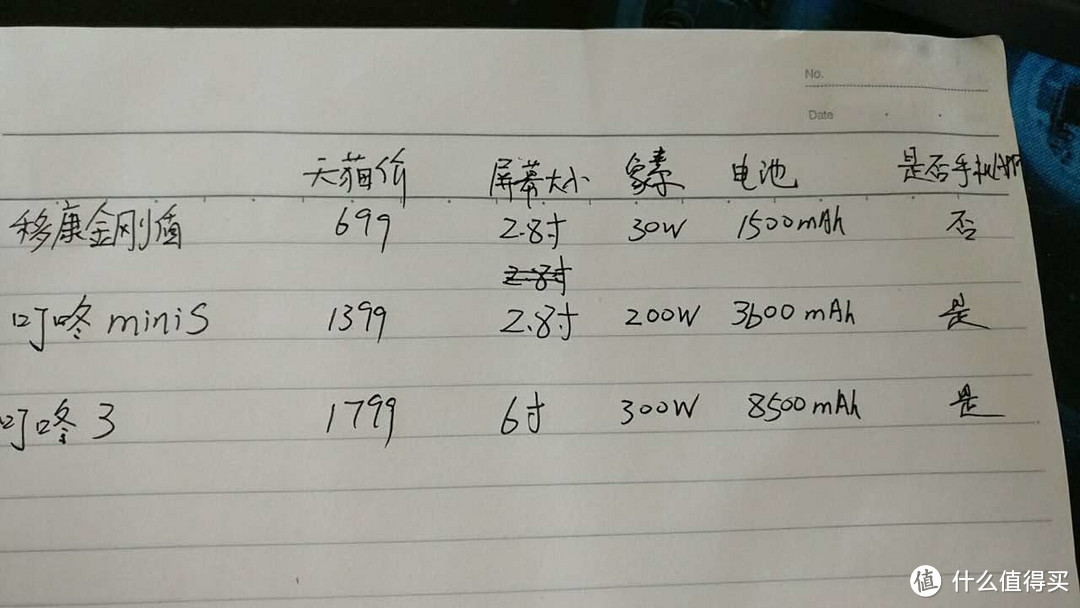 No.
Date
天猫价 屏幕大小 象素 电池 是否手机APP
移康金刚盾 699 2.8寸 30W 1500mAh 否
2.8寸
叮咚 miniS 1399 2.8寸 200W 3600mAh 是
叮咚 3 1799 6寸 300W 8500mAh 是
值 什么值得买